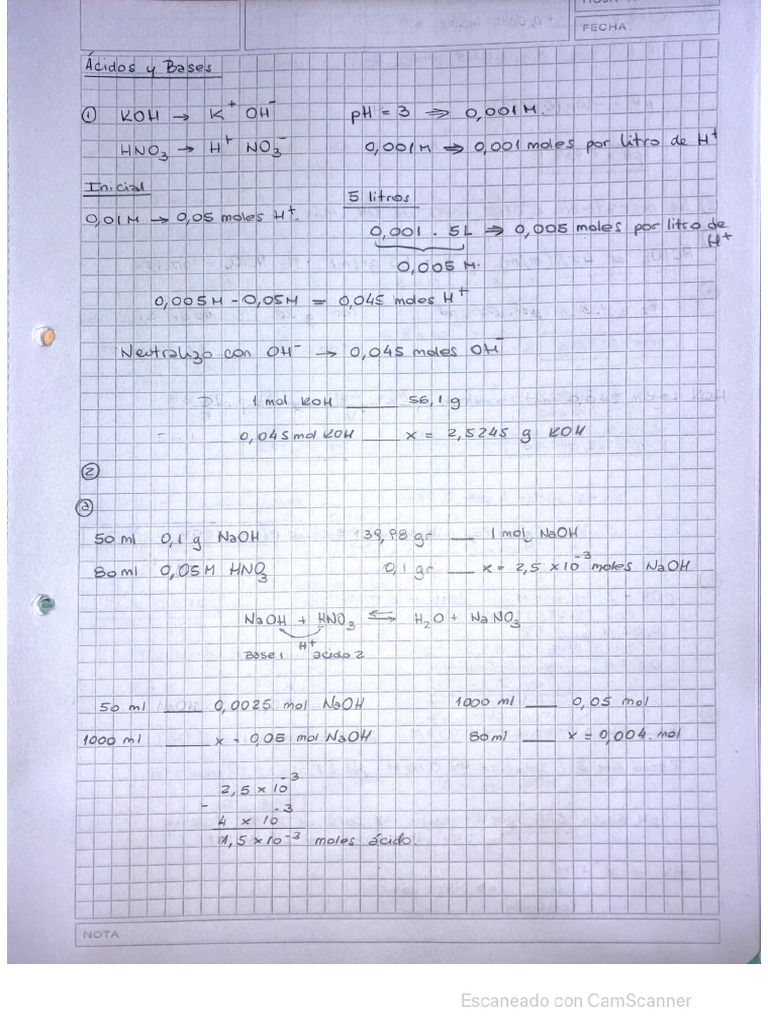 FECHA
Ácidos y Bases
① KOH → K⁺ OH⁻ pH = 3 ⇒ 0,001 M.
HNO₃ → H⁺ NO₃⁻ 0,001 M ⇒ 0,001 moles por litro de H⁺
Inicial
5 litros
0,01 M → 0,05 moles H⁺.
0,001 . 5L ⇒ 0,005 moles por litro de H⁺
0,005 M.
0,005 M - 0,05 M = 0,045 moles H⁺
Neutralizo con OH⁻ → 0,045 moles OH⁻
1 mol KOH ___ 56,1 g
0,045 mol KOH ___ x = 2,5245 g KOH
②
ⓐ
50 ml 0,1 g NaOH 39,98 gr ___ 1 mol NaOH
80 ml 0,05 M HNO₃ 0,1 gr ___ x = 2,5 x 10⁻³ moles NaOH
NaOH + HNO₃ ⇆ H₂O + NaNO₃
H⁺
Base 1 ácido 2
50 ml ___ 0,0025 mol NaOH 1000 ml ___ 0,05 mol
1000 ml ___ x = 0,05 mol NaOH 80 ml ___ x = 0,004 mol
2,5 x 10⁻³
- 4 x 10⁻³
1,5 x 10⁻³ moles ácido.
NOTA
Escaneado con CamScanner